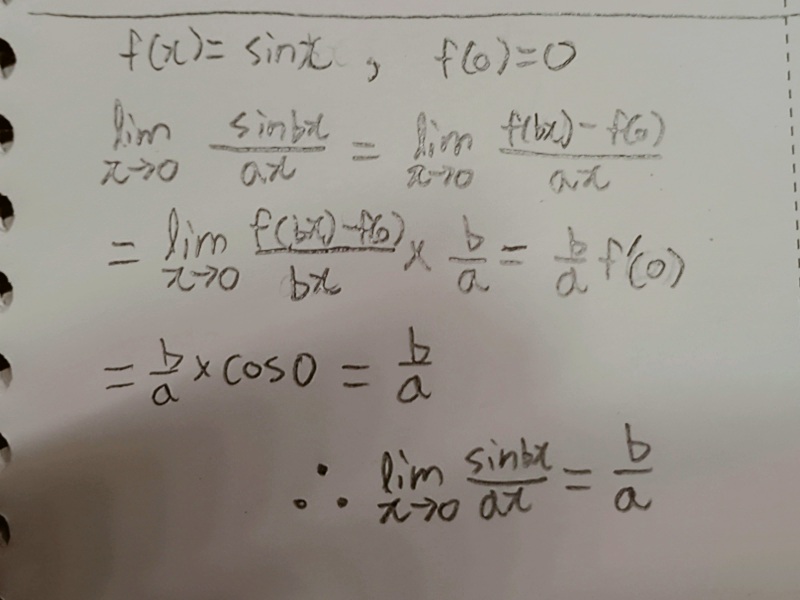 f(x) = sinx, f(0) = 0
lim x→0 sinbx/ax = lim x→0 (f(bx) - f(0))/ax
= lim x→0 (f(bx) - f(0))/bx × b/a = b/a f'(0)
= b/a × cos0 = b/a
∴ lim x→0 sinbx/ax = b/a